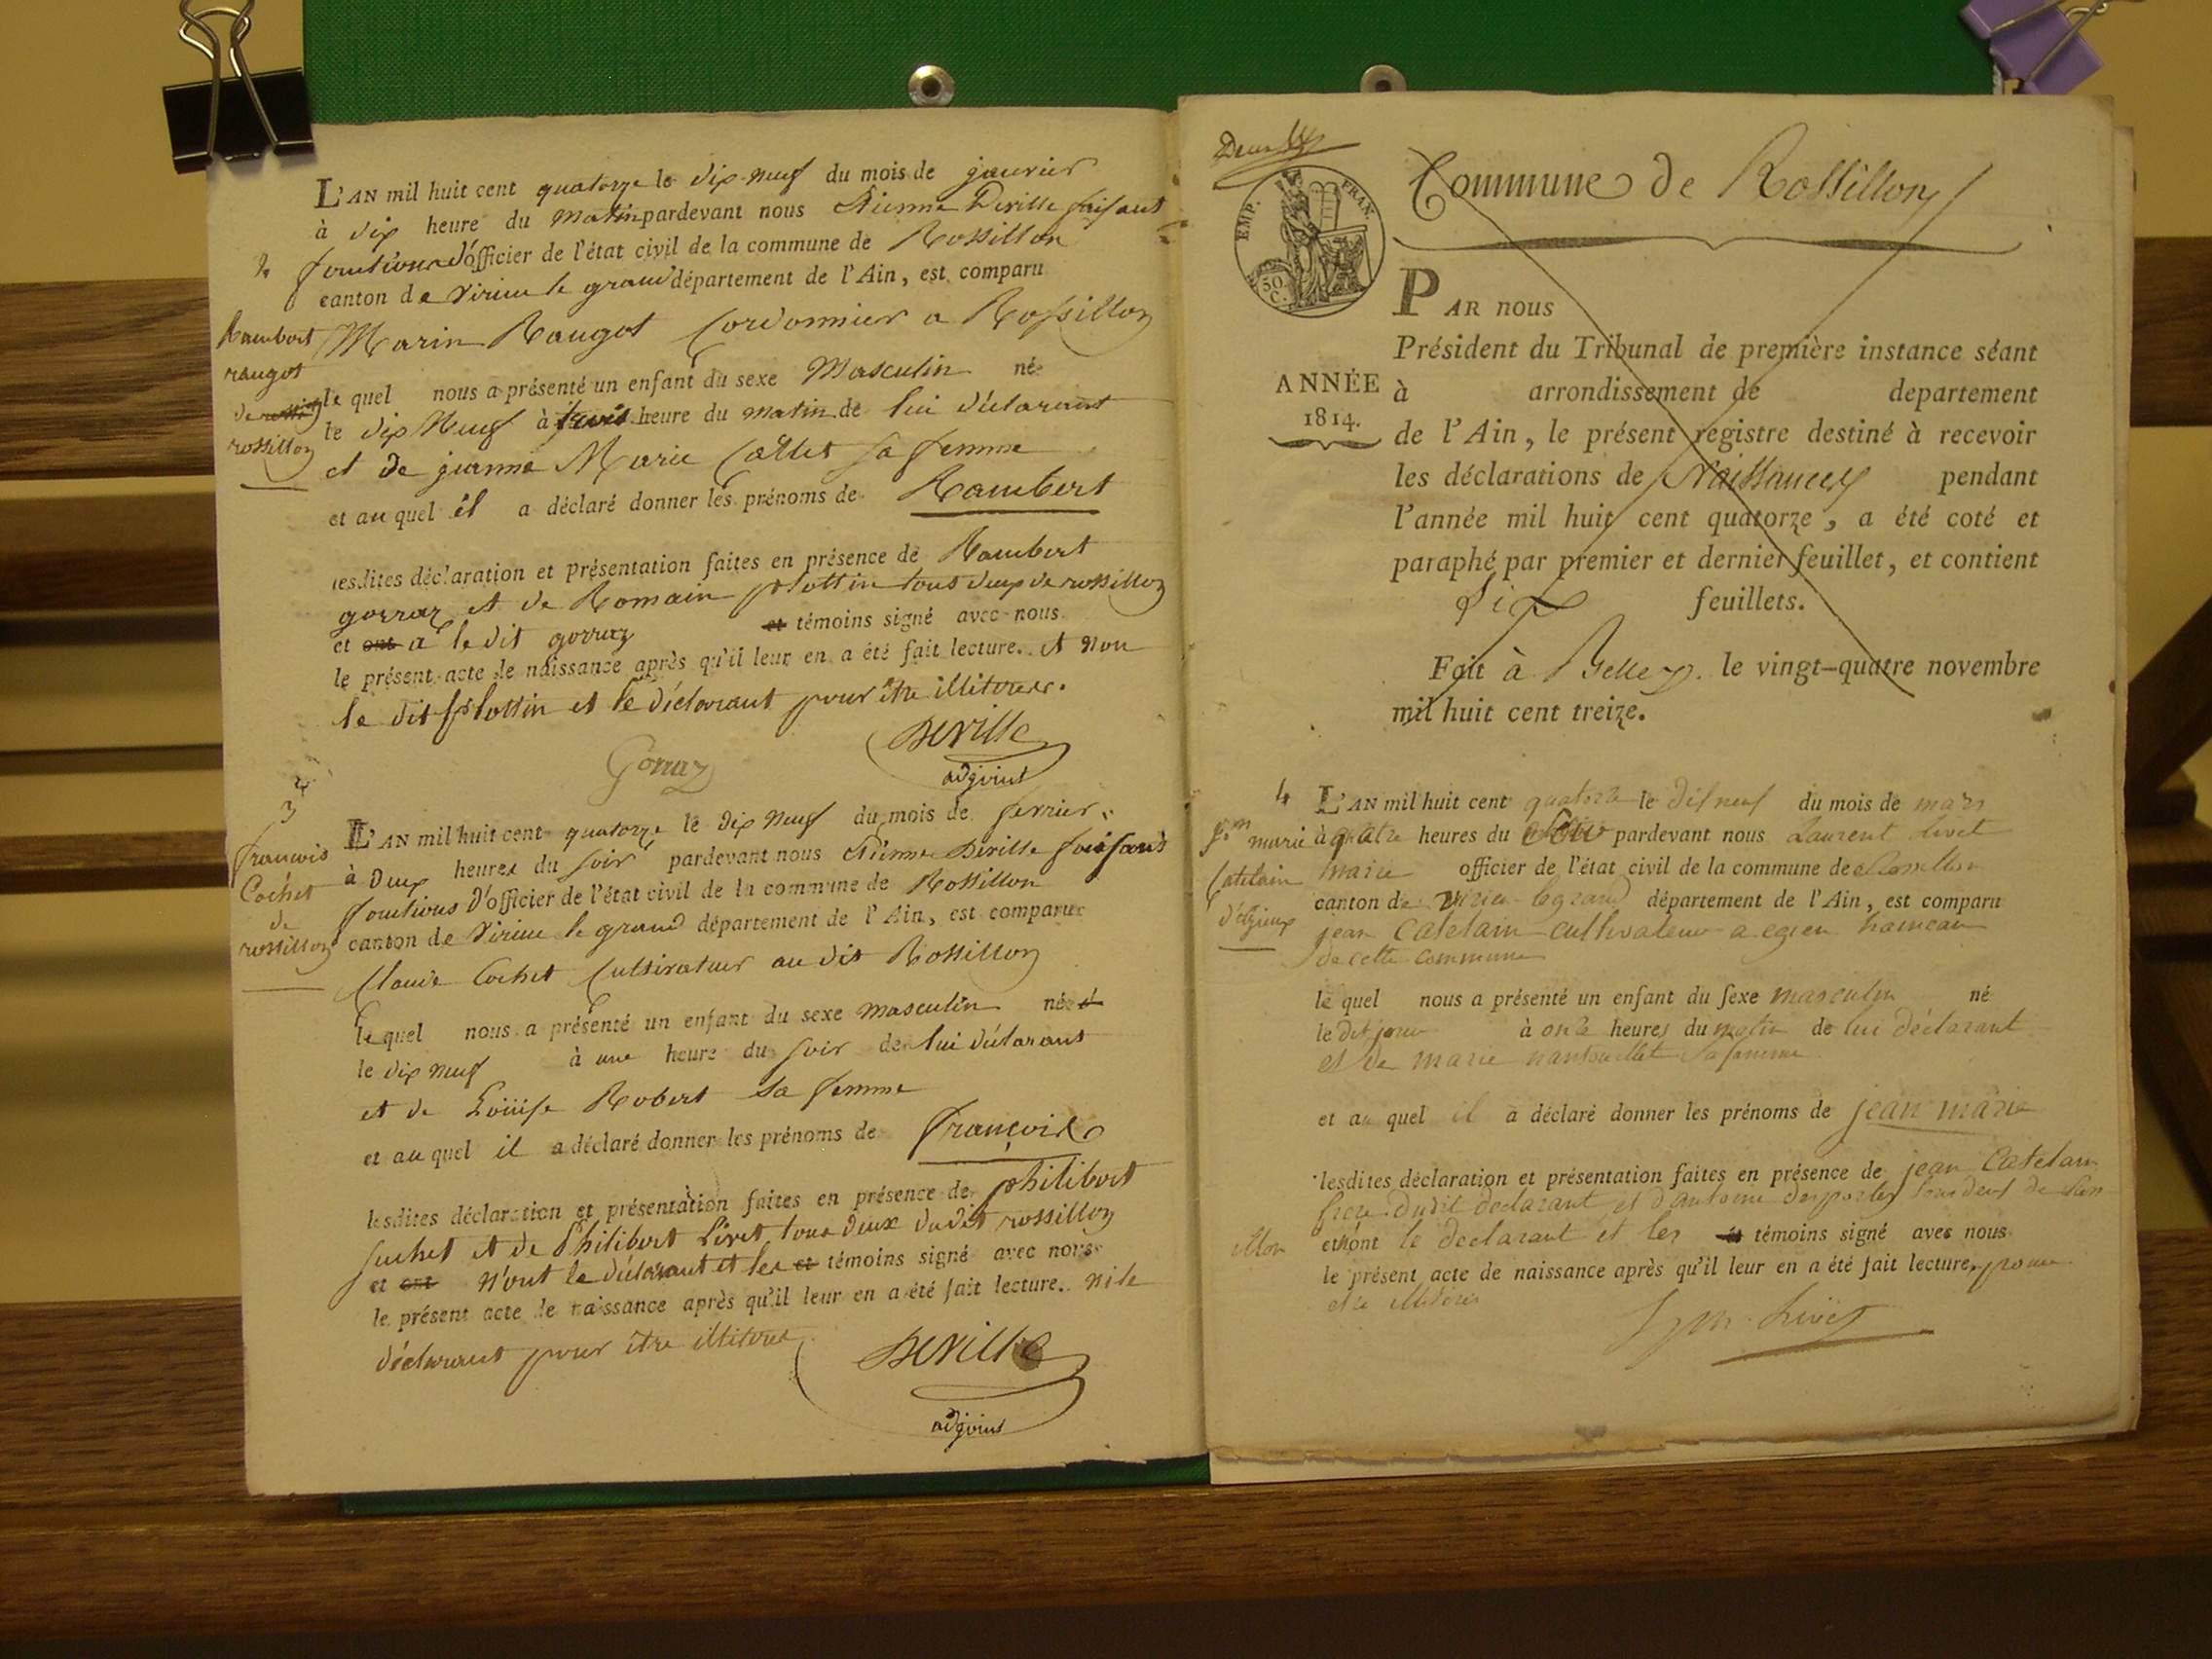 L'AN mil huit cent quatorze le dix neuf du mois de janvier
à dix heure du matin pardevant nous Etienne Deville faisant
2 fonctions d'officier de l'état civil de la commune de Rossillon
canton de Virieu le grand département de l'Ain, est comparu
Rambert
raugot
de
rossillon
Marin Raugot Cordonnier a Rossillon
le quel nous a présenté un enfant du sexe Masculin né
le dix Neuf à trois heure du matin de lui déclarant
et de jeanne Marie Collet sa femme
et au quel il a déclaré donner les prénoms de Rambert
lesdites déclaration et présentation faites en présence de Rambert
gorraz et de Romain plottin tous deux de rossillon
et ont a le dit gorraz et témoins signé avec nous
le présent acte de naissance après qu'il leur en a été fait lecture. et non
le dit plottin et le déclarant pour être illiterés.
Deville
adjoint
Gorraz
3
francois
Cochet
de
rossillon
L'AN mil huit cent quatorze le dix neuf du mois de fevrier
à Deux heures du soir pardevant nous Etienne Deville faisant
fonctions d'officier de l'état civil de la commune de Rossillon
canton de Virieu le grand département de l'Ain, est comparu
Claude Cochet Cultivateur au dit Rossillon
le quel nous a présenté un enfant du sexe masculin né
le dix neuf à une heure du soir de lui déclarant
et de Loüise Robert sa femme
et au quel il a déclaré donner les prénoms de françois
lesdites déclaration et présentation faites en présence de philibert
suchet et de Philibert Livet tous deux du dit rossillon
et ont n'ont le déclarant et les et témoins signé avec nous
le présent acte de naissance après qu'il leur en a été fait lecture. ni le
déclarant pour être illiterés
Deville
adjoint
Deux
EMP. FRAN.
50 C.
Commune de Rossillon
ANNÉE
1814.
PAR nous
Président du Tribunal de première instance séant
à arrondissement de departement
de l'Ain, le présent registre destiné à recevoir
les déclarations de Naissances pendant
l'année mil huit cent quatorze, a été coté et
paraphé par premier et dernier feuillet, et contient
Six feuillets.
Fait à Belley. le vingt-quatre novembre
mil huit cent treize.
4
jn marie
Catelain
d'egieux
L'AN mil huit cent quatorze le dis neuf du mois de mars
à quatre heures du soir pardevant nous Laurent Livet
maire officier de l'état civil de la commune de Rossillon
canton de virieu le grand département de l'Ain, est comparu
jean Catelain cultivateur a egieu hameau
de cette commune
le quel nous a présenté un enfant du sexe masculin né
le dit jour à onze heures du matin de lui déclarant
et de marie nantouillet sa femme
et au quel il a déclaré donner les prénoms de jean marie
lesdites déclaration et présentation faites en présence de jean Catelain
frere dudit declarant et d'antoine desportes tous deux de Ross
illon et n'ont le declarant et les et témoins signé avec nous
le présent acte de naissance après qu'il leur en a été fait lecture, pour
etre illiterés
Livet